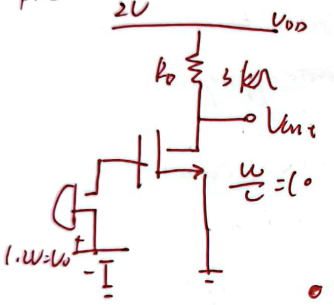 2V
VDD
RD
3kΩ
Vout
W/L = 10
1.2V = V0
+
-